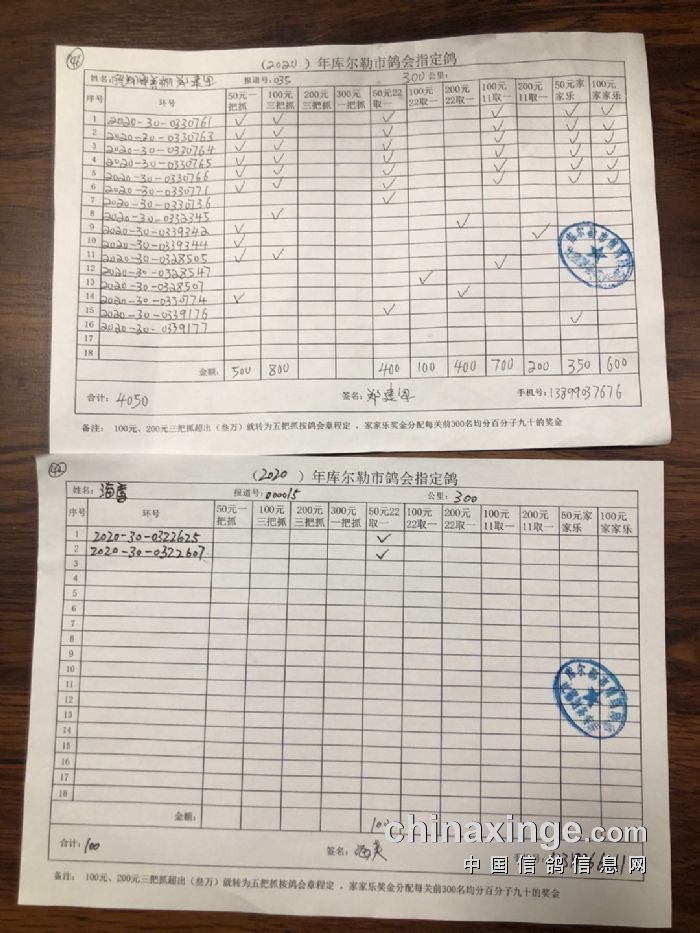 46
（2020 ）年库尔勒市鸽会指定鸽
姓名： 郑建军 报道号：035 300公里：
序号 环号 50元一把抓 100元三把抓 200元三把抓 300元一把抓 50元22取一 100元22取一 200元22取一 100元11取一 200元11取一 50元家家乐 100元家家乐
1 2020-30-0330761 ✓ ✓ ✓ ✓ ✓ ✓
2 2020-30-0330763 ✓ ✓ ✓ ✓ ✓ ✓
3 2020-30-0330764 ✓ ✓ ✓ ✓ ✓ ✓
4 2020-30-0330765 ✓ ✓ ✓ ✓ ✓ ✓
5 2020-30-0330766 ✓ ✓ ✓ ✓ ✓ ✓
6 2020-30-0330771 ✓ ✓ ✓
7 2020-30-0330736 ✓
8 2020-30-0332345 ✓
9 2020-30-0339342 ✓ ✓
10 2020-30-0339344 ✓ ✓
11 2020-30-0328505 ✓ ✓
12 2020-30-0328547 ✓
13 2020-30-0328507 ✓
14 2020-30-0330774 ✓ ✓
15 2020-30-0339176 ✓
16 2020-30-0339177 ✓
17
18
金额： 500 800 400 100 400 700 200 350 600
合计：4050 签名： 手机号：13899037676
备注： 100元、200元三把抓超出（叁万）就转为五把抓按鸽会章程定 ，家家乐奖金分配每关前300名均分百分子九十的奖金
（2020 ）年库尔勒市鸽会指定鸽
姓名： 报道号：000015 公里：300
序号 环号 50元一把抓 100元三把抓 200元三把抓 300元一把抓 50元22取一 100元22取一 200元22取一 100元11取一 200元11取一 50元家家乐 100元家家乐
1 2020-30-0322625 ✓
2 2020-30-0322607 ✓
3
4
5
6
7
8
9
10
11
12
13
14
15
16
17
18
金额：
合计：100 签名：
备注： 100元、200元三把抓超出（叁万）就转为五把抓按鸽会章程定 ，家家乐奖金分配每关前300名均分百分子九十的奖金
chinaxinge.com
中国信鸽信息网